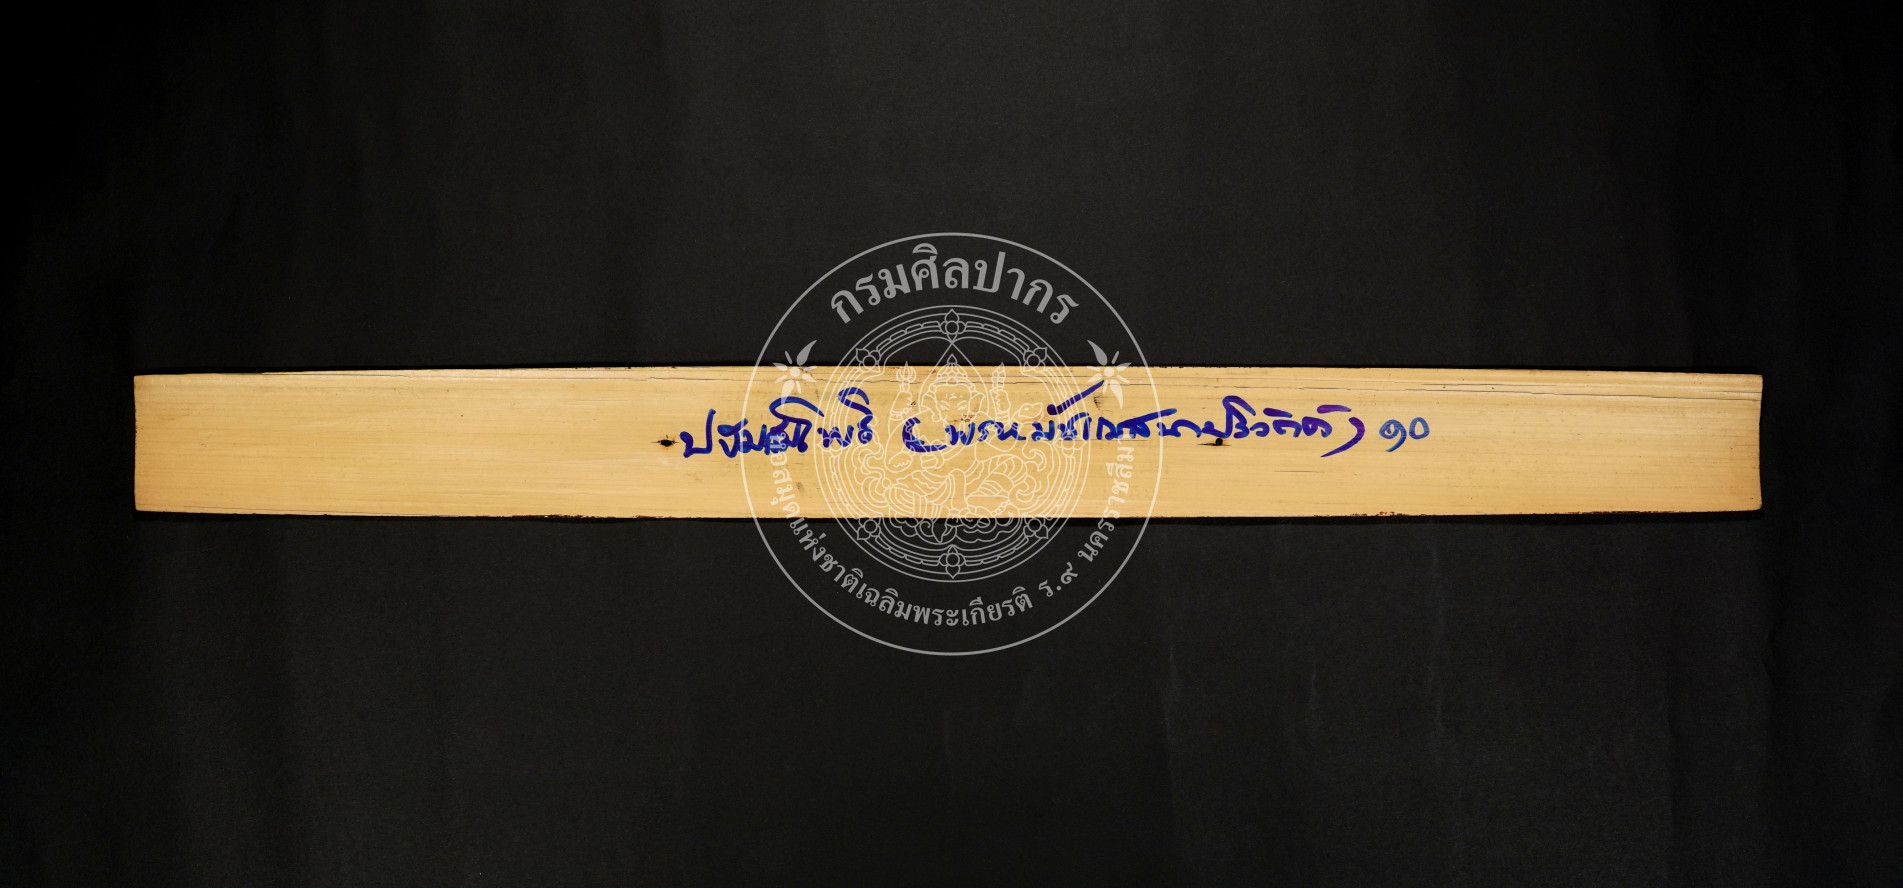 กรมศิลปากร
ปฐมสมโพธิ (พรหมัชเฌสนาปริวิตติ) ๑๐
หอสมุดแห่งชาติเฉลิมพระเกียรติ ร.๙ นครราชสีมา